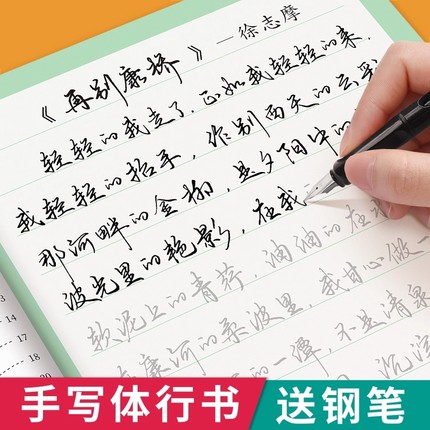 《再别康桥》—徐志摩
轻轻的我走了，正如我轻轻的来，
我轻轻的招手，作别西天的云彩
那河畔的金柳，是夕阳中的
波光里的艳影，在我
软泥上的青荇，油油的在水
在康河的柔波里，我甘心做一
的一潭，不是清泉
沉淀
13
14
17
18
20
手写体行书 送钢笔